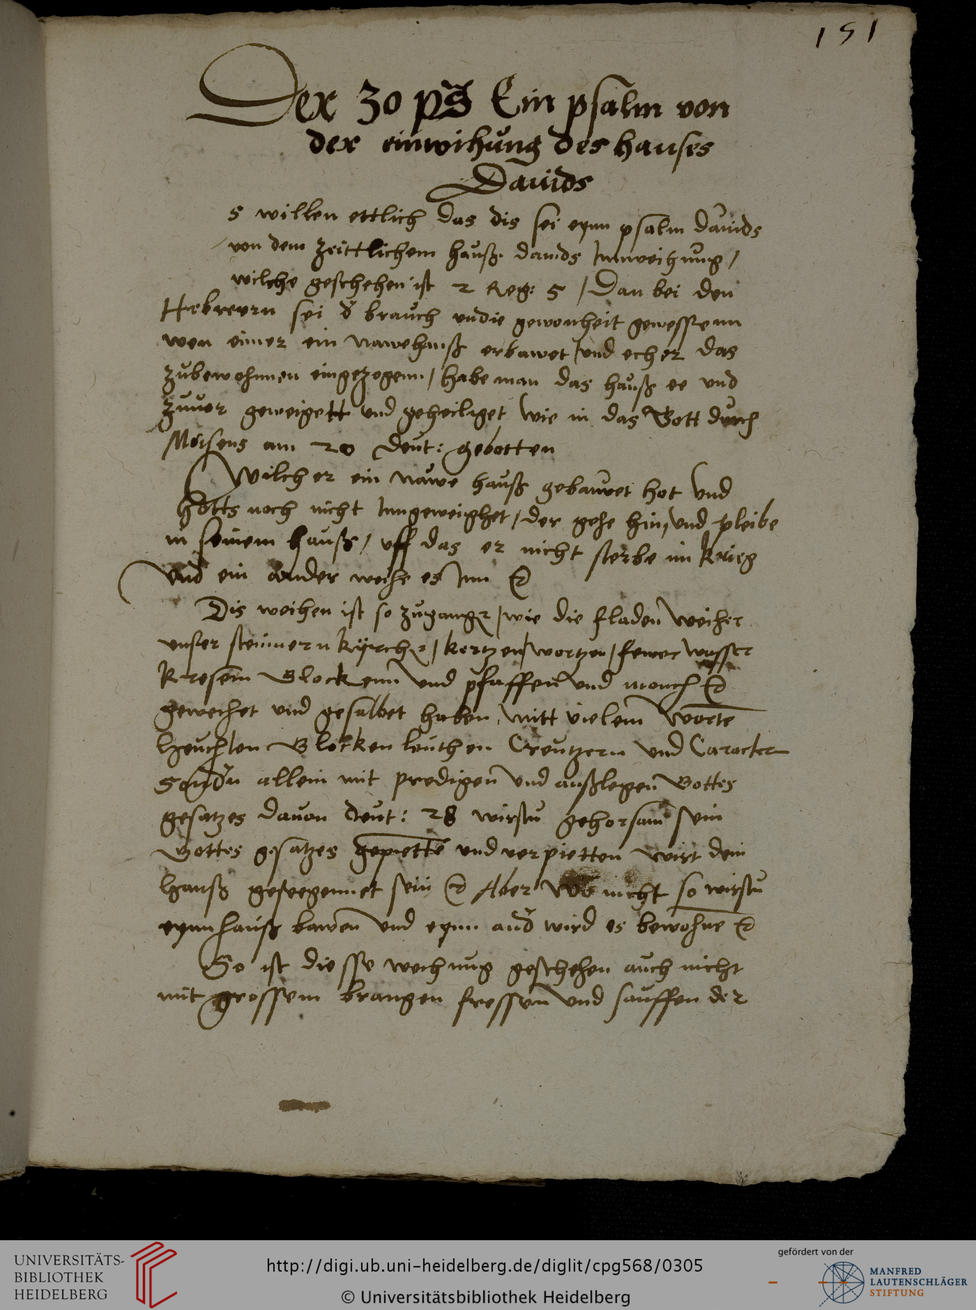 151
Der 30 ps Ein psalm von
der einwihung des hauses
Dauids
S willen ettlich das dis sei eynn psalm dauids
von dem zeittlichem hauß dauids Innweihung /
wilche geschehen ist 2 Reg: 5 / Dan bei den
Hebreern sei d brauch vndie gewonheit gewessenn
wen einer ein nawehauß erbawet vnd ech er das
zubewohnnen eingezogenn / habe man das hauß ee vnd
zuuer geweigett vnd geheiliget wie in das Gott durch
Moisens am 20 Deut: gebotten
Wilcher ein nawe hauß gebauwet hot vnd
hotts noch nicht Inngeweighet / der gehe hin vnd pleibe
in seinem hauß / vff das er nicht sterbe im krieg
vnd ein ander weihe es Inn
Dis weihen ist so zugangen / wie die fladen weiher
vnser steinnern kyrchen / kertzen / wortzen / fewer wasser
kresem Glockenn vnd pfaffen vnd monch
geweihet vnd gesalbet haben mitt vielem worte
leuchten Glocken leuthen Creutzern vnd Caracter
Sondn allein mit predigen vnd außlegen Gottes
gesatzes dauon deut: 28 wirstu gehorsam sein
Gottes gesatzes gepiette vnd verpietten wirt dein
hauß geseegennet sein Aber wo nicht so wirstu
eynn hauß bawen vnd eynn and wird es bewohne
So ist diesse weihnug geschehen auch nicht
mit grossem brangen fressen vnd sauffen der
UNIVERSITÄTS-
BIBLIOTHEK
HEIDELBERG
http://digi.ub.uni-heidelberg.de/diglit/cpg568/0305
© Universitätsbibliothek Heidelberg
gefördert von der
MANFRED
LAUTENSCHLÄGER
STIFTUNG